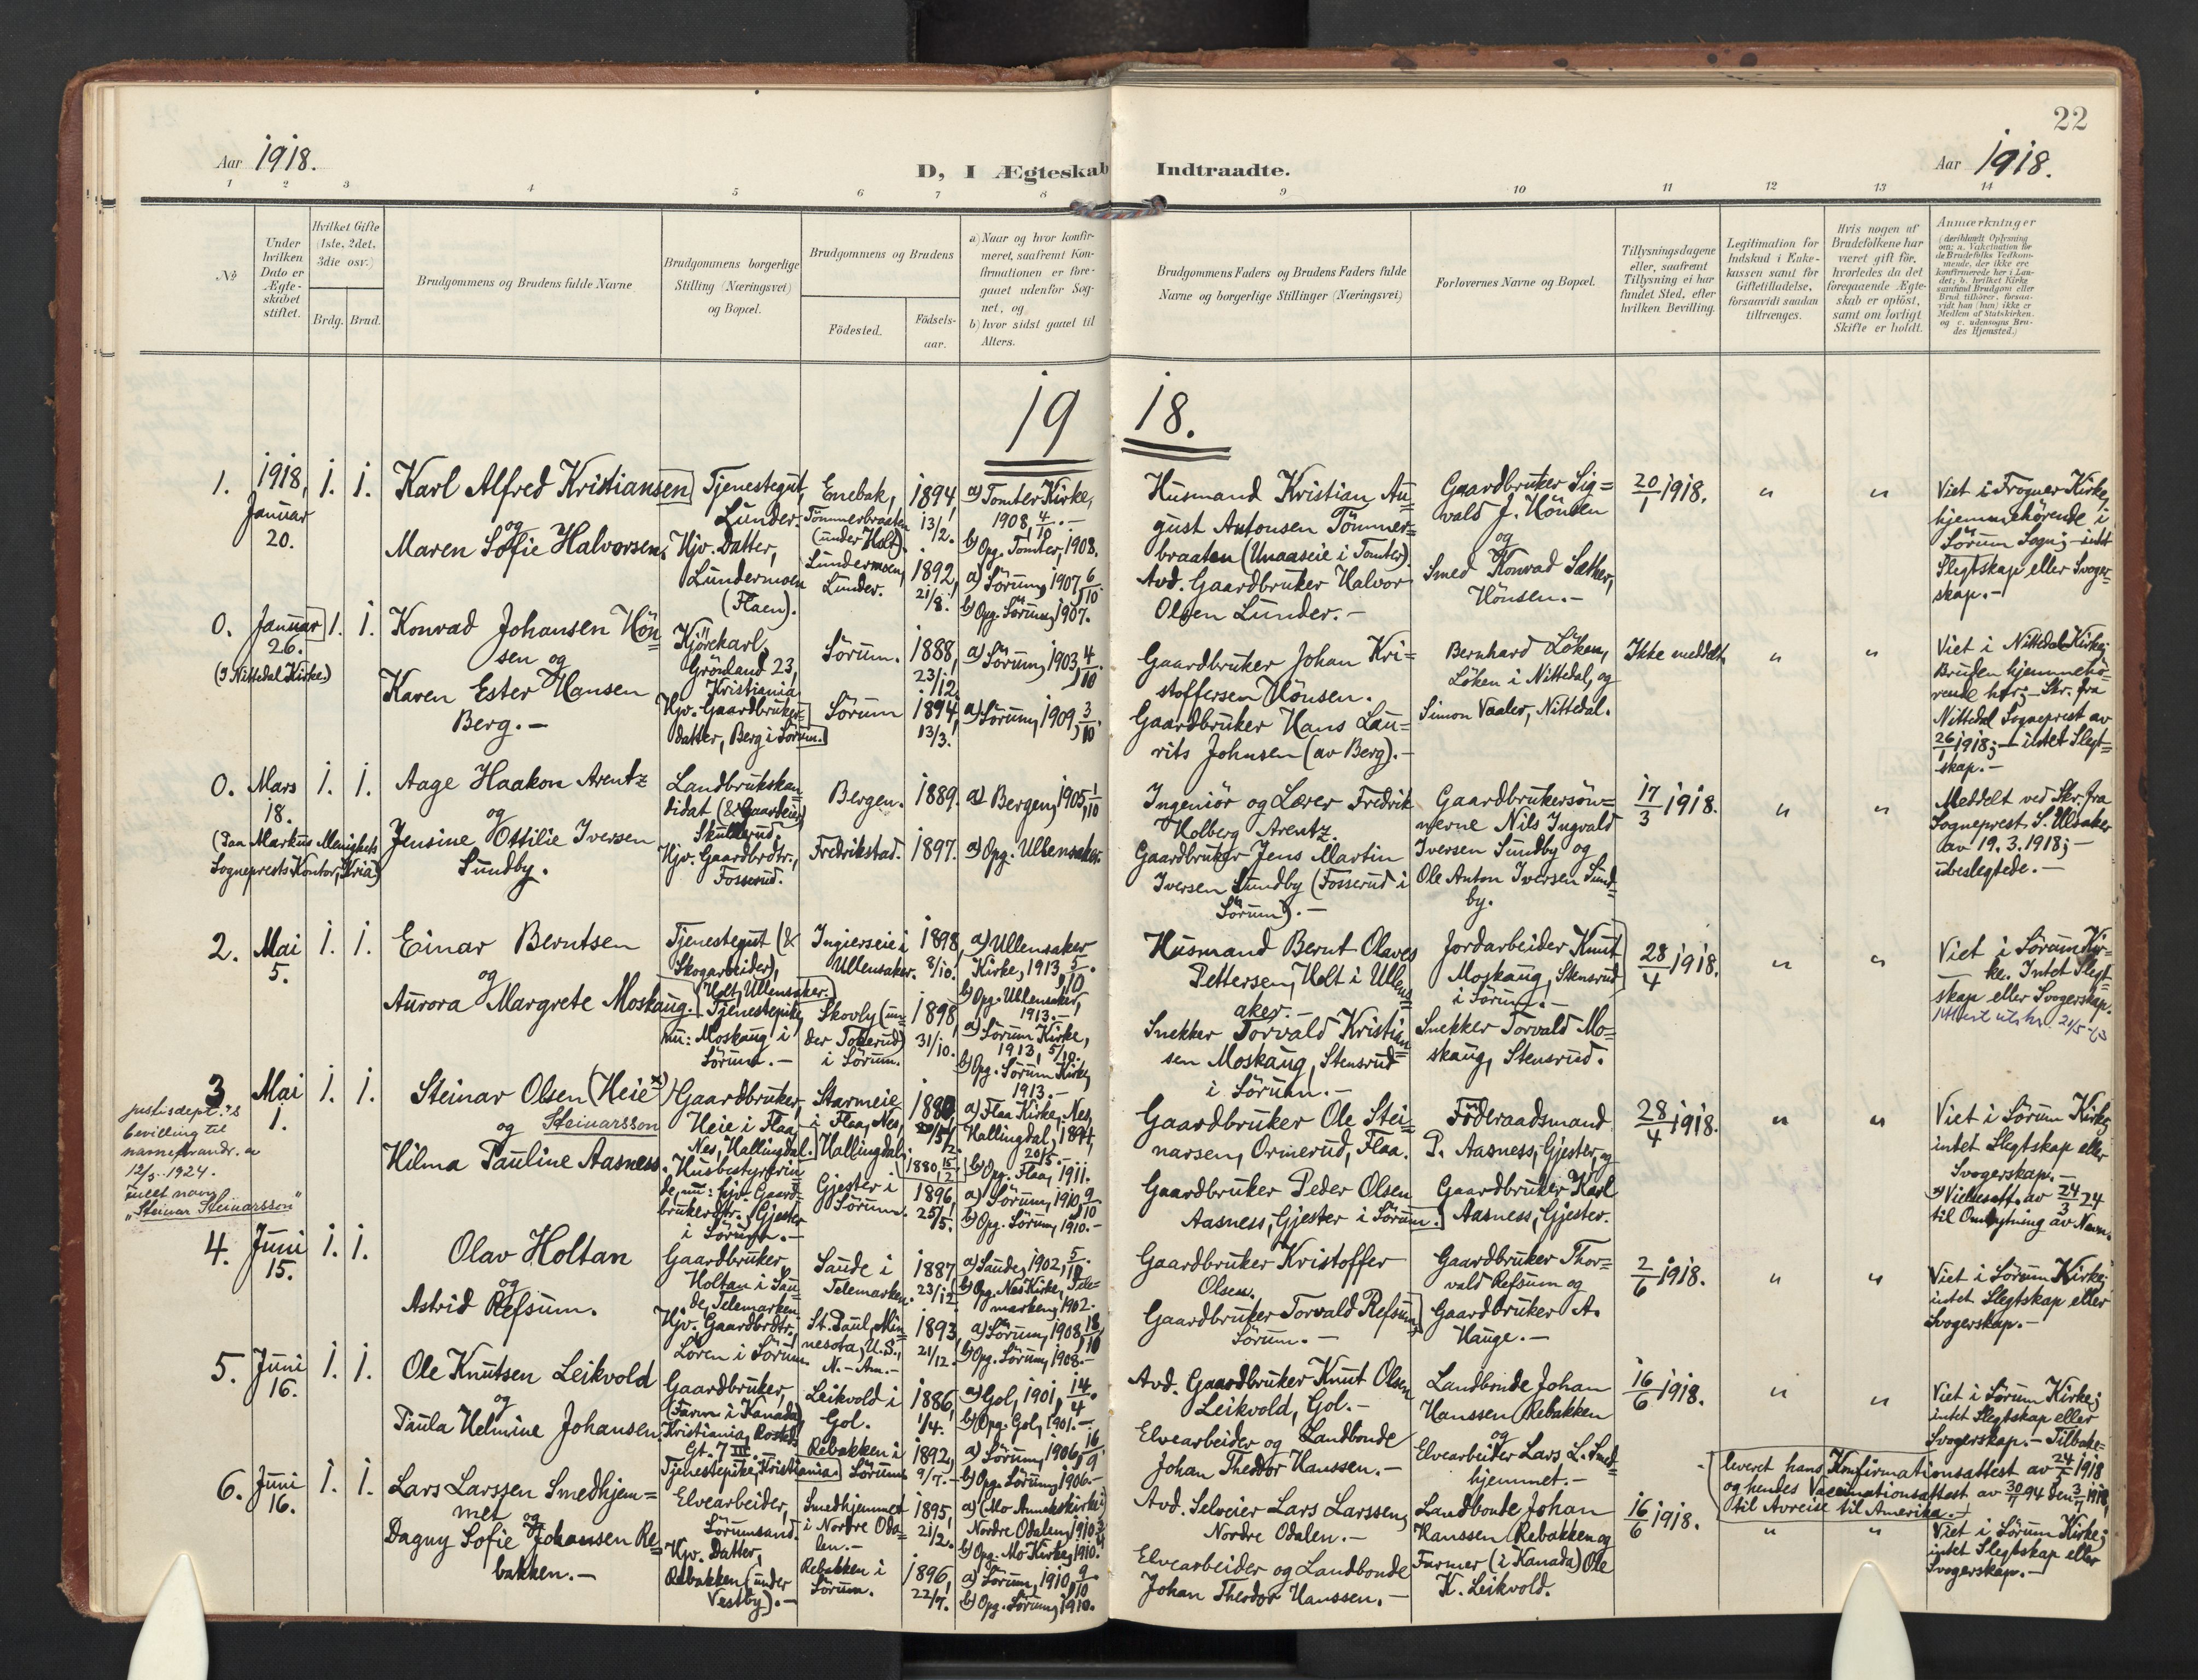 22
Aar 1918.
D, I Ægteskab Indtraadte.
Aar 1918.
1 2 3 4 5 6 7 8 9 10 11 12 13 14
No
Under
hvilken
Dato er
Ægte-
skabet
stiftet.
Hvilket Gifte
(1ste, 2det,
3die osv.)
Brdg. Brud.
Brudgommens og Brudens fulde Navne
Brudgommens borgerlige
Stilling (Næringsvei)
og Bopæl.
Brudgommens og Brudens
Födested.
Födsels-
aar.
a) Naar og hvor konfir-
meret, saafremt Kon-
firmationen er fore-
gaaet udenfor Sog-
net, og
b) hvor sidst gaaet til
Alters.
Brudgommens Faders og Brudens Faders fulde
Navne og borgerlige Stillinger (Næringsvei)
Forlovernes Navne og Bopæl.
Tillysningsdagene
eller, saafremt
Tillysning ei har
fundet Sted, efter
hvilken Bevilling.
Legitimation for
Indskud i Enke-
kassen samt for
Giftetilladelse,
forsaavidt saadan
tiltrænges.
Hvis nogen af
Brudefolkene har
været gift för,
hvorledes da det
foregaaende Ægte-
skab er oplöst,
samt om lovligt
Skifte er holdt.
Anmærkninger
(deriblandt Oplysning
om: a. Vakcination for
de Brudefolks Vedkom-
mende, der ikke ere
konfirmerede her i Lan-
det; b. hvilket Kirke
samfund Brudgom eller
Brud tilhörer, forsaa-
vidt han (hun) ikke er
Medlem af Statskirken.
og c. udensogns Bru-
des Hjemsted.)
1918.
1.
1918,
Januar
20.
1. 1.
Karl Alfred Kristiansen
og
Maren Sofie Halvorsen.
Tjenestegut,
Lunder.
Hjv. Datter,
Lundermoen
(Flaen).
Enebak,
Tömmerbraaten
(under Holt).
Lundermoen,
Lunder.
1894,
13/2.
1892,
21/8.
a) Tomter Kirke,
1908, 4/10. -
b) Opg. Tomter, 1908.
a) Sörum, 1907, 6/10
b) Opg. Sörum, 1907.
Husmand Kristian Au=
gust Antonsen Tömmer=
braaten (Unaaseie i Tomter).
Avd. Gaardbruker Halvor
Olsen Lunder. -
Gaardbruker Sig=
vald J. Hönsen
og
Smed Konrad Sæther,
Hönsen. -
20/1 1918.
" "
Viet i Frogner Kirke,
hjemmehörende i
Sörum Sogn; - intet
Slegtskap eller Svoger=
skap. -
0.
Januar
26.
(I Nittedal Kirke.)
1. 1.
Konrad Johansen Hön=
sen og
Karen Ester Hansen
Berg. -
Kjörekarl,
Grönland 23,
Kristiania
Hjv. Gaardbruker=
datter, Berg i Sörum.
Sörum.
Sörum
1888,
23/12.
1894,
13/3.
a) Sörum, 1903, 4/10.
a) Sörum, 1909, 3/10.
Gaardbruker Johan Kri=
stoffersen Hönsen.
Gaardbruker Hans Lau=
rits Johnsen (av Berg). -
Bernhard Löken,
Löken i Nittedal, og
Simon Vaaler, Nittedal.
Ikke meddelt.
" "
Viet i Nittedal Kirke;
Bruden hjemmehö-
rende her; - Skr. fra
Nittedal Sogneprest av
26/1 1918; - intet Slegt=
skap. -
0.
Mars
18.
(Paa Markus Menighets
Sogneprests Kontor, Kria.)
1. 1.
Aage Haakon Arentz
og
Jensine Ottilie Iversen
Sundby.
Landbrukskan=
didat (& Gaardeier)
Skullerud.
Hjv. Gaardbrdtr.,
Fosserud.
Bergen.
Fredrikstad.
1889.
1897.
a) Bergen, 1905, 1/10
a) Opg. Ullensaker.
Ingeniör og Lærer Fredrik
Holberg Arentz.
Gaardbruker Jens Martin
Iversen Sundby (Fosserud i
Sörum). -
Gaardbrukersön=
nerne Nils Ingvald
Iversen Sundby og
Ole Anton Iversen Sund=
by.
17/3 1918.
" "
Meddelt ved Skr. fra
Sogneprest S. Ulsaker
av 19. 3. 1918; -
ubeslegtede. -
2.
Mai
5.
1. 1.
Einar Berntsen
og
Aurora Margrete Moskaug.
Tjenestegut (&
Skogarbeider),
Holt, Ullensaker.
Tjenestepike,
nu: Moskaug i
Sörum. -
Ingierseie i
Ullensaker.
Skovly (un=
der Toserud)
i Sörum.
1898,
8/10.
1898,
31/10.
a) Ullensaker
Kirke, 1913, 5/10.
b) Opg. Ullensaker,
1913. -
a) Sörum Kirke,
1913, 5/10.
b) Opg. Sörum Kirke,
1913. -
Husmand Bernt Olaves
Pettersen, Holt i Ullens=
aker. -
Snekker Torvald Kristian=
sen Moskaug, Stensrud
i Sörum. -
Jordarbeider Knut
Moskaug, Stensrud
i Sörum. -
Snekker Torvald Mo=
skaug, Stensrud.
28/4 1918.
" "
Viet i Sörum Kir=
ke. Intet Slegt=
skap eller Svogerskap.
Attest utskr. 21/5-
3
Mai
1.
justisdept.'s
bevilling til
navneforandr. a
12/5 1924.
fullt navn
"Steinar Steinarsson"
1. 1.
Steinar Olsen (Heie x)
og Steinarsson
Hilma Pauline Aasness.
Gaardbruker,
Heie i Flaa,
Nes, Hallingdal.
Husbestyrerin=
de, nu: hjv. Gaard=
brukerdtr., Gjester
i Sörum. -
Starmeie
i Flaa, Nes,
Hallingdal.
Gjester i
Sörum.
1880,
1880 15/12
1896,
25/5.
a) Flaa Kirke, Nes,
Hallingdal, 1894,
20/5. -
b) Opg. Flaa, 1911.
a) Sörum, 1910, 9/10
b) Opg. Sörum, 1910. -
Gaardbruker Ole Stei=
narsen, Ormerud, Flaa.
Gaardbruker Peder Olsen
Aasness, Gjester i Sörum.
Föderaadsmand
P. Aasness, Gjester, og
Gaardbruker Karl
Aasness, Gjester.
28/4 1918.
" "
Viet i Sörum Kirke;
intet Slegtskap eller
Svogerskap. -
x) Vielsesatt. av 24/3 24
til Ombytning av Navn.
4.
Juni
15.
1. 1.
Olav Holtan
og
Astrid Refsum.
Gaardbruker,
Holtan i Sau=
de, Telemarken
Hjv. Gaardbrdtr.,
Lören i Sörum
Saude i
Telemarken.
St. Paul, Min=
nesota, U.S.,
N.-Am. -
1887
23/12
1893,
21/12.
a) Saude, 1902, 5/10.
b) Opg. Nes Kirke, Tele=
marken, 1902.
a) Sörum, 1908, 18/10
b) Opg. Sörum, 1908. -
Gaardbruker Kristoffer
Olsen.
Gaardbruker Torvald Refsum,
Sörum. -
Gaardbruker Thor=
vald Refsum og
Gaardbruker A.
Hauge. -
2/6 1918.
" "
Viet i Sörum Kirke;
intet Slegtskap eller
Svogerskap. -
5.
Juni
16.
1. 1.
Ole Knutsen Leikvold
og
Paula Helmine Johansen.
Gaardbruker,
(Farm i Kanada)
Kristiania, Rosteds
Gt. 7 III. -
Tjenestepike, Kristiania.
Leikvold i
Gol.
Rebakken i
Sörum
1886,
1/4.
1892,
9/7. -
a) Gol, 1901, 14/4.
b) Opg. Gol, 1901. -
a) Sörum, 1906, 16/9
b) Opg. Sörum, 1906. -
Avd. Gaardbruker Knut Olsen
Leikvold, Gol. -
Elvearbeider og Landbonde
Johan Theodor Hanssen. -
Landbonde Johan
Hanssen Rebakken
og
Elvearbeider Lars L. Smed=
hjemmet. -
16/6 1918.
" "
Viet i Sörum Kirke;
intet Slegtskap eller
Svogerskap. - Tilbake=
leveret hans Konfirmationsattest av 24/5 1918
og hendes Vaccinationsattest av 30/11 94 den 3/7 1918,
til Avreise til Amerika. -
6.
Juni
16.
1. 1.
Lars Larssen Smedhjem=
met og
Dagny Sofie Johansen Re=
bakken. -
Elvearbeider,
Sörumsand.
Hjv. Datter,
Rebakken (under
Vestby). -
Smedhjemmet
i Nordre Oda=
len. -
Rebakken i
Sörum.
1895,
21/2.
1896,
22/7.
a) (Mo Annekskirke)
Nordre Odalen, 1910
b) Opg. Mo Kirke, 1910.
a) Sörum, 1910, 9/10
b) Opg. Sörum, 1910.
Avd. Selveier Lars Larssen,
Nordre Odalen. -
Elvearbeider og Landbonde
Johan Theodor Hanssen. -
Landbonde Johan
Hanssen Rebakken og
Farmer (i Kanada) Ole
K. Leikvold.
16/6 1918.
" "
Viet i Sörum Kirke;
intet Slegtskap eller
Svogerskap. -